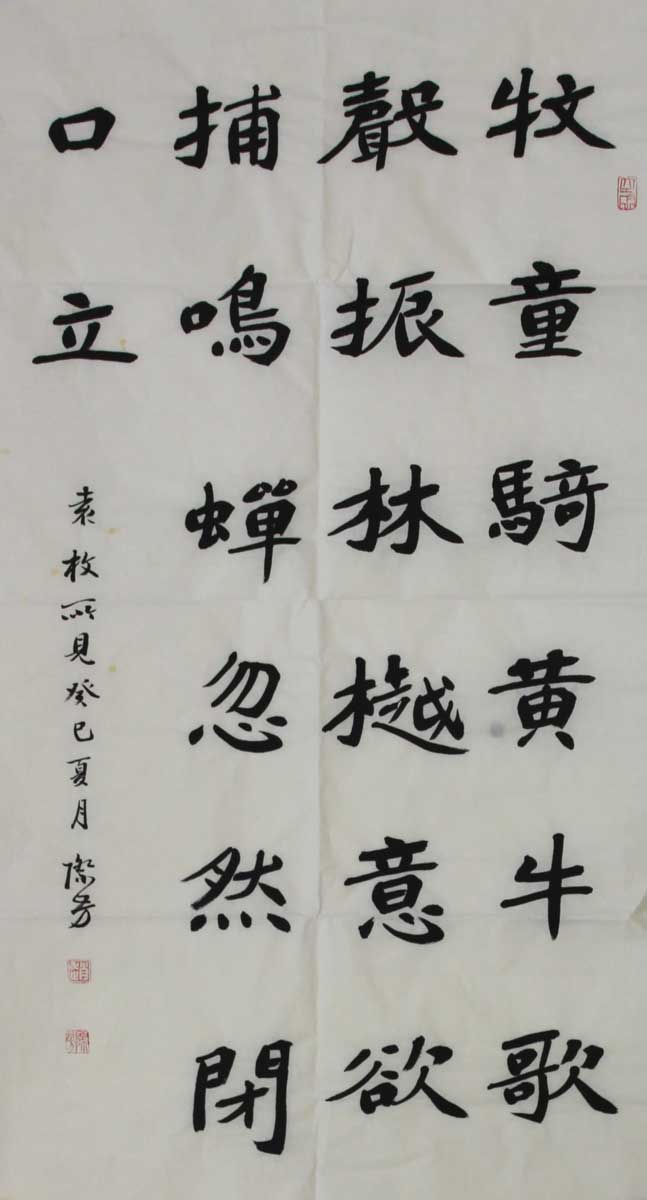 牧童騎黄牛歌
聲振林樾意欲
捕鳴蟬忽然閉
口立
袁枚所見癸巳夏月